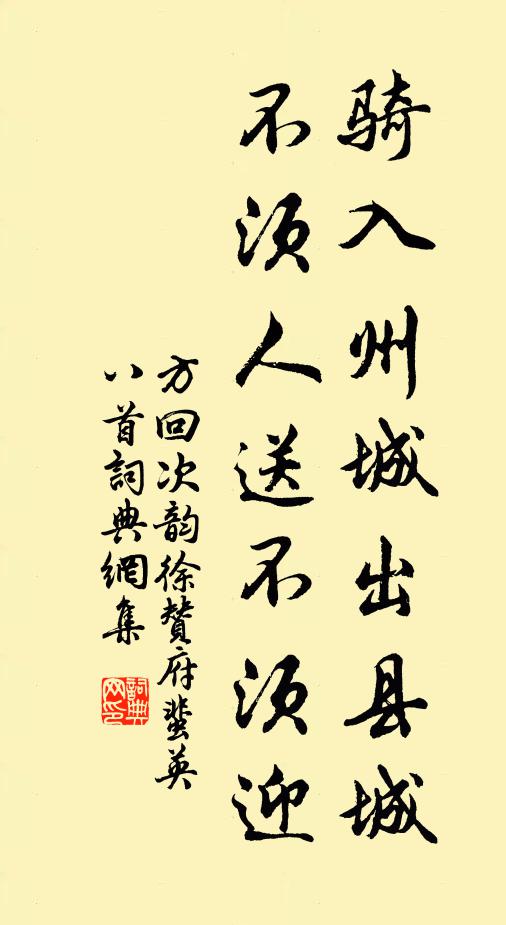 骑入州城出县城
不须人送不须迎
方回次韵徐赞府蜚英
八首詞典網集
詞典
网印